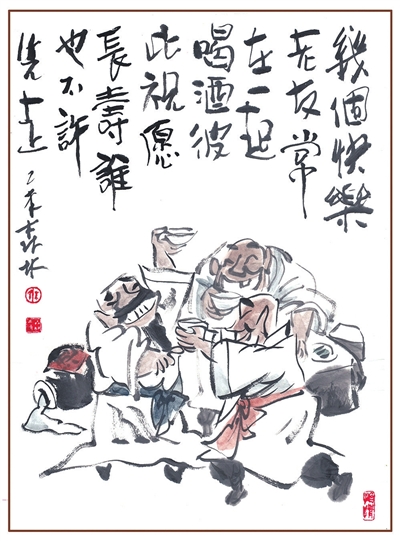 幾個快樂
老友常
在一起
喝酒彼
此祝愿
長壽誰
也不許
先走
乙未